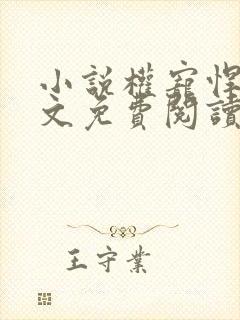 小說權寵悍
文免費閱讀
王守業